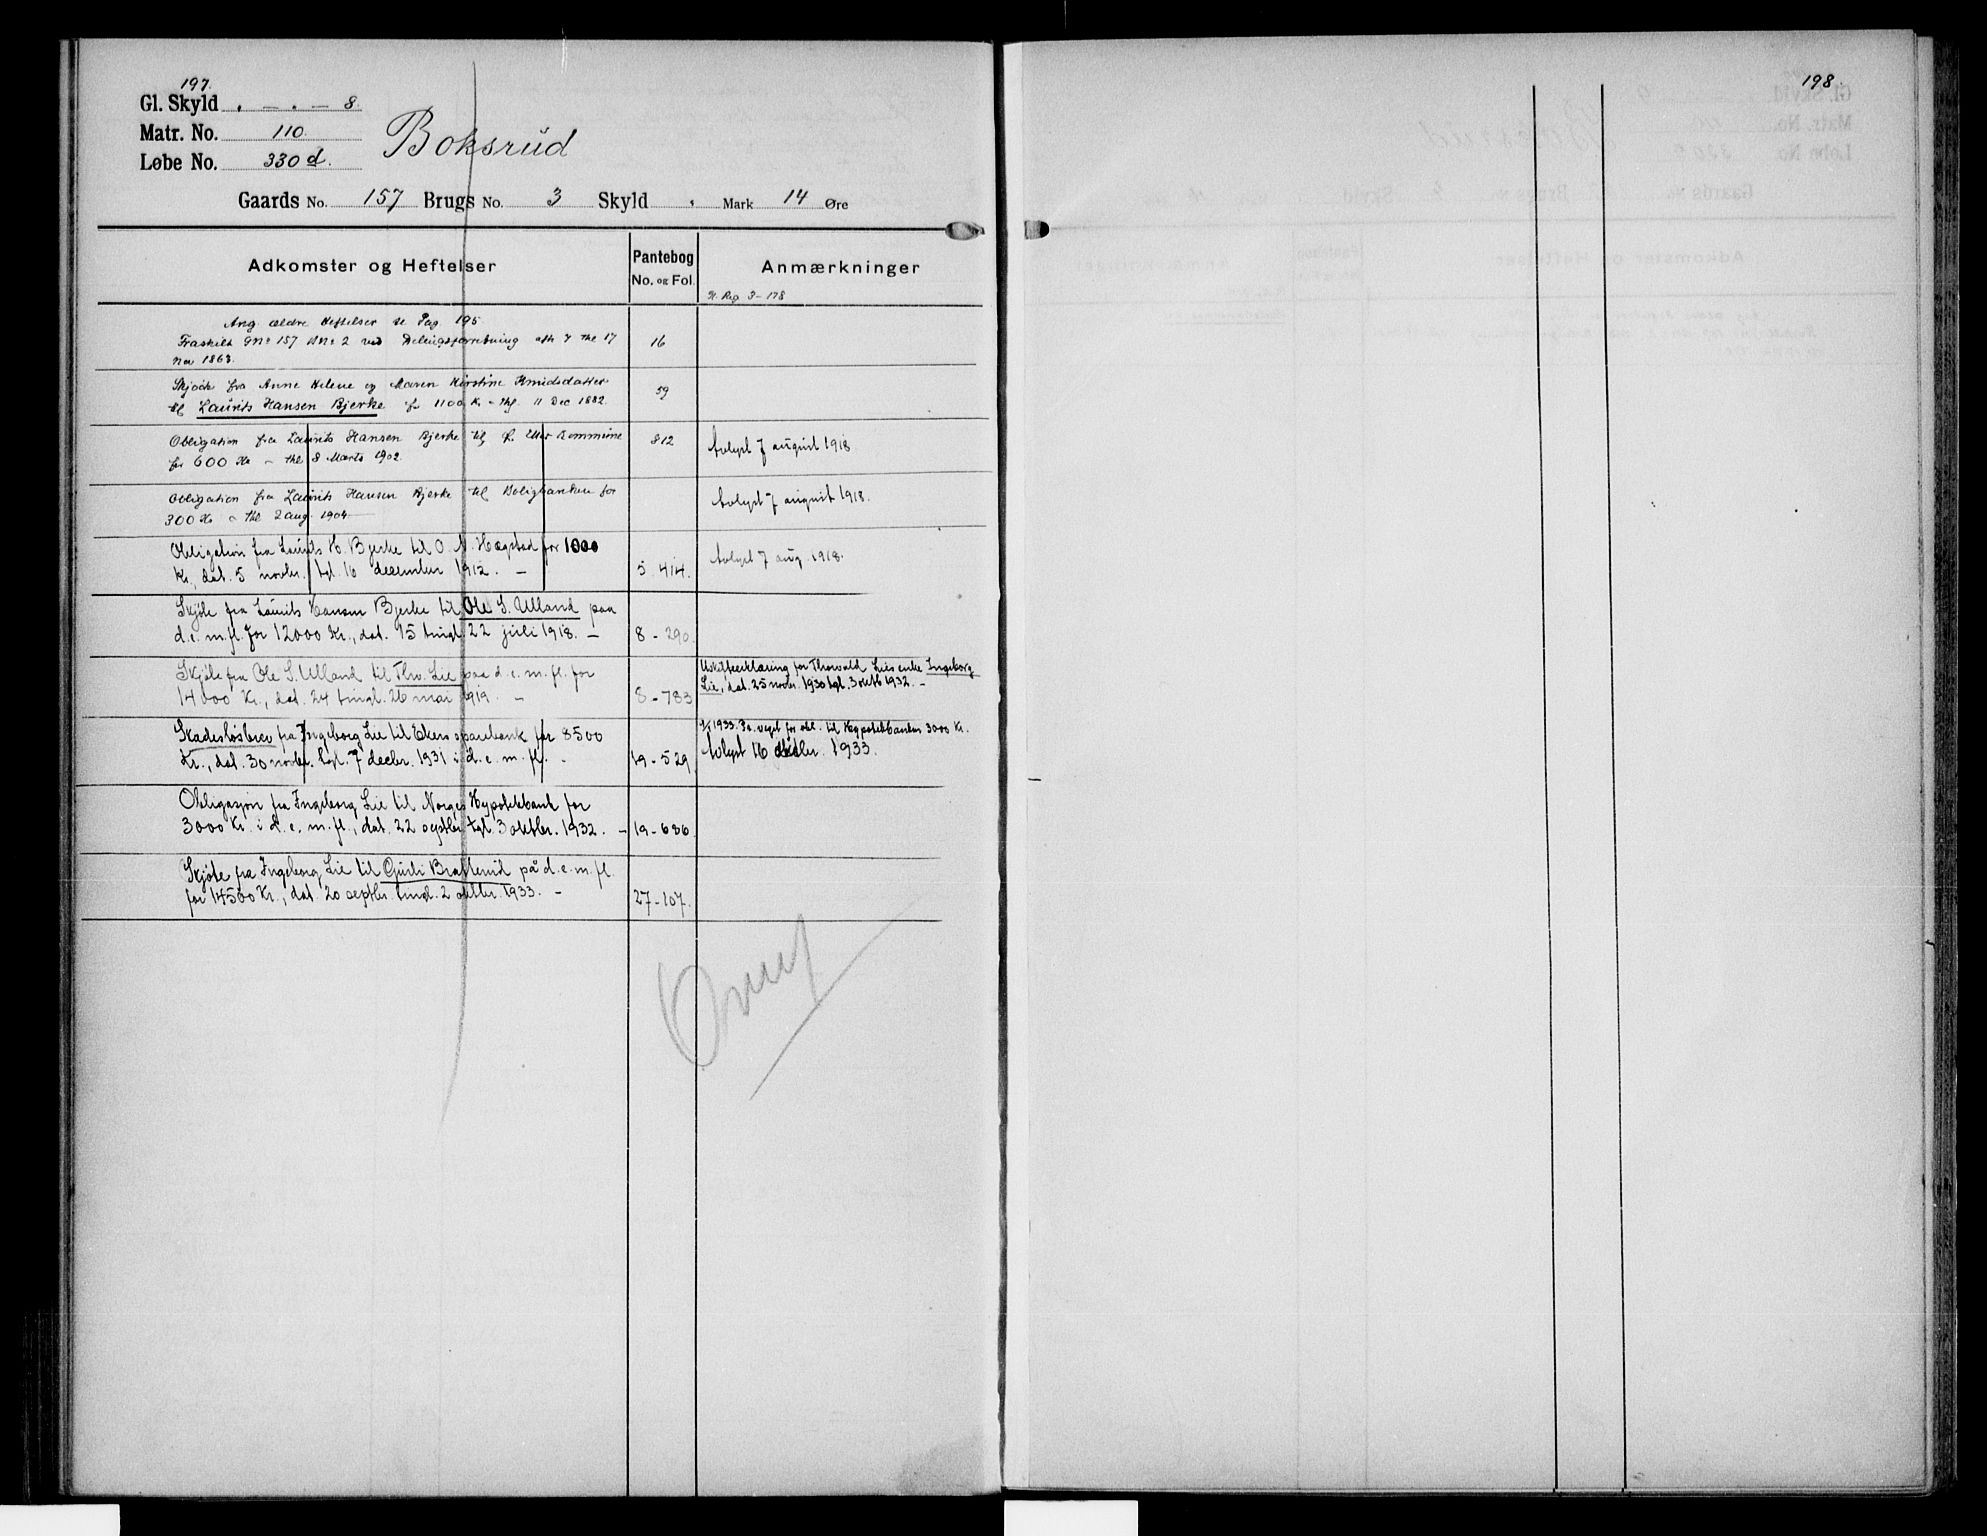 197.
Gl. Skyld . — . — 8.
Matr. No. 110.
Løbe No. 330 d.
Boksrud
Gaards No. 157 Brugs No. 3 Skyld . Mark 14 Øre
Adkomster og Heftelser
Pantebog
No. og Fol.
Anmærkninger
Reg 3-178
Ang ældre Heftelser se Pag 195.
Fraskilt Gno 157 Bno 2 ved Delingsforretning thl 17
Nov 1863.
16
Skjøde fra Anne Helene og Maren Kirstine Knudsdatter
til Laurits Hansen Bjerke for 1100 Kr - thl. 11 Dec 1882.
59
Obligation fra Laurits Hansen Bjerke til Ø. Eker Kommune
for 600 Kr - thl 8 Marts 1902.
812
Avlyst 7 august 1918.
Obligation fra Laurits Hansen Bjerke til Boligbanken for
300 Kr - thl 2 aug. 1904
Avlyst 7 august 1918.
Obligation fra Laurits H. Bjerke til O. N. Hægstad for 1000
Kr., dat. 5 novbr. tgl. 16 december 1912. —
5 414.
Avlyst 7 aug. 1918.
Skjøte fra Laurits Hansen Bjerke til Ole S. Ulland paa
d. e. m. fl. for 12000 Kr., dat. 15 tingl. 22 juli 1918. —
8 - 290.
Skjøte fra Ole S. Ulland til Thv. Lie paa d. e. m. fl. for
14000 Kr., dat. 24 tingl. 26 mai 1919. —
8 - 783
Uskifteerklæring for Thorvald Lies enke Ingeborg
Lie, dat. 25 novbr. 1930 tgl. 3 oktb 1932. —
Skadesløsbrev fra Ingeborg Lie til Ekers sparebank for 8500
Kr., dat. 30 novbr. tgl. 7 decbr. 1931 i d. e. m. fl. .
19 - 529.
1933. Pr. veget for obl. til Hypotekbanken 3000 Kr.
Avlyst 16 oktbr. 1933.
Obligasjon fra Ingeborg Lie til Norges Hypotekbank for
3000 Kr. i d. e. m. fl., dat. 22 septbr. tgl. 3 oktbr. 1932. —
19 - 686.
Skjøte fra Ingeborg Lie til Guri Bratterud på d. e. m. fl.
for 14500 Kr., dat. 20 septbr. tingl. 2 oktbr. 1933. —
27 - 107.
198.